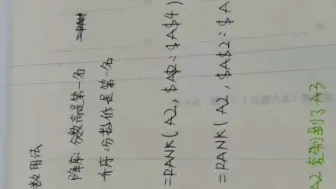 数用法
降序:分数高是第一名
升序:分数低是第一名
=RANK(A2,$A$2:$A$4)
=RANK(A2,$A$2:$A
A2 复制到了A3